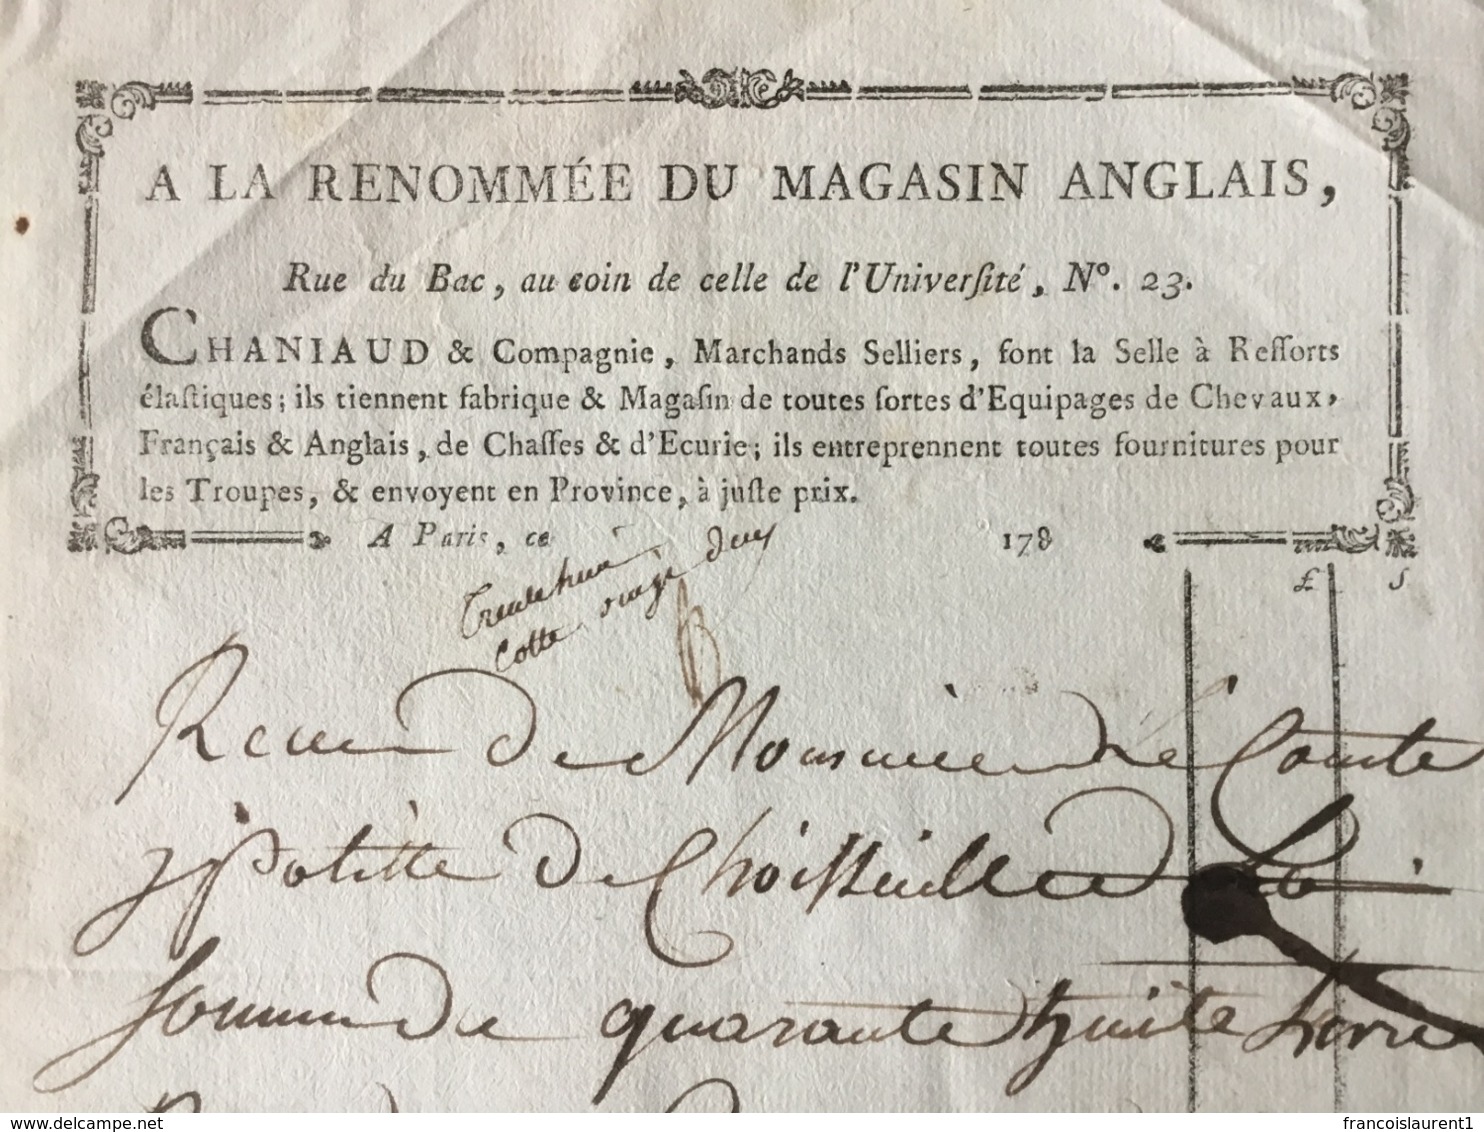 A LA RENOMMÉE DU MAGASIN ANGLAIS,
Rue du Bac, au coin de celle de l'Univerſité, N°. 23.
CHANIAUD & Compagnie, Marchands Selliers, font la Selle à Reſſorts
élaſtiques; ils tiennent fabrique & Magaſin de toutes ſortes d'Equipages de Chevaux,
Français & Anglais, de Chaſſes & d'Ecurie; ils entreprennent toutes fournitures pour
les Troupes, & envoyent en Province, à juſte prix.
A Paris, ce 178
Cotte
₤ S
Recu De Monsieur Le Comte
ypolitte De Choisseulle La
somme De quarante huite Livre
www.delcampe.net francoislaurent1